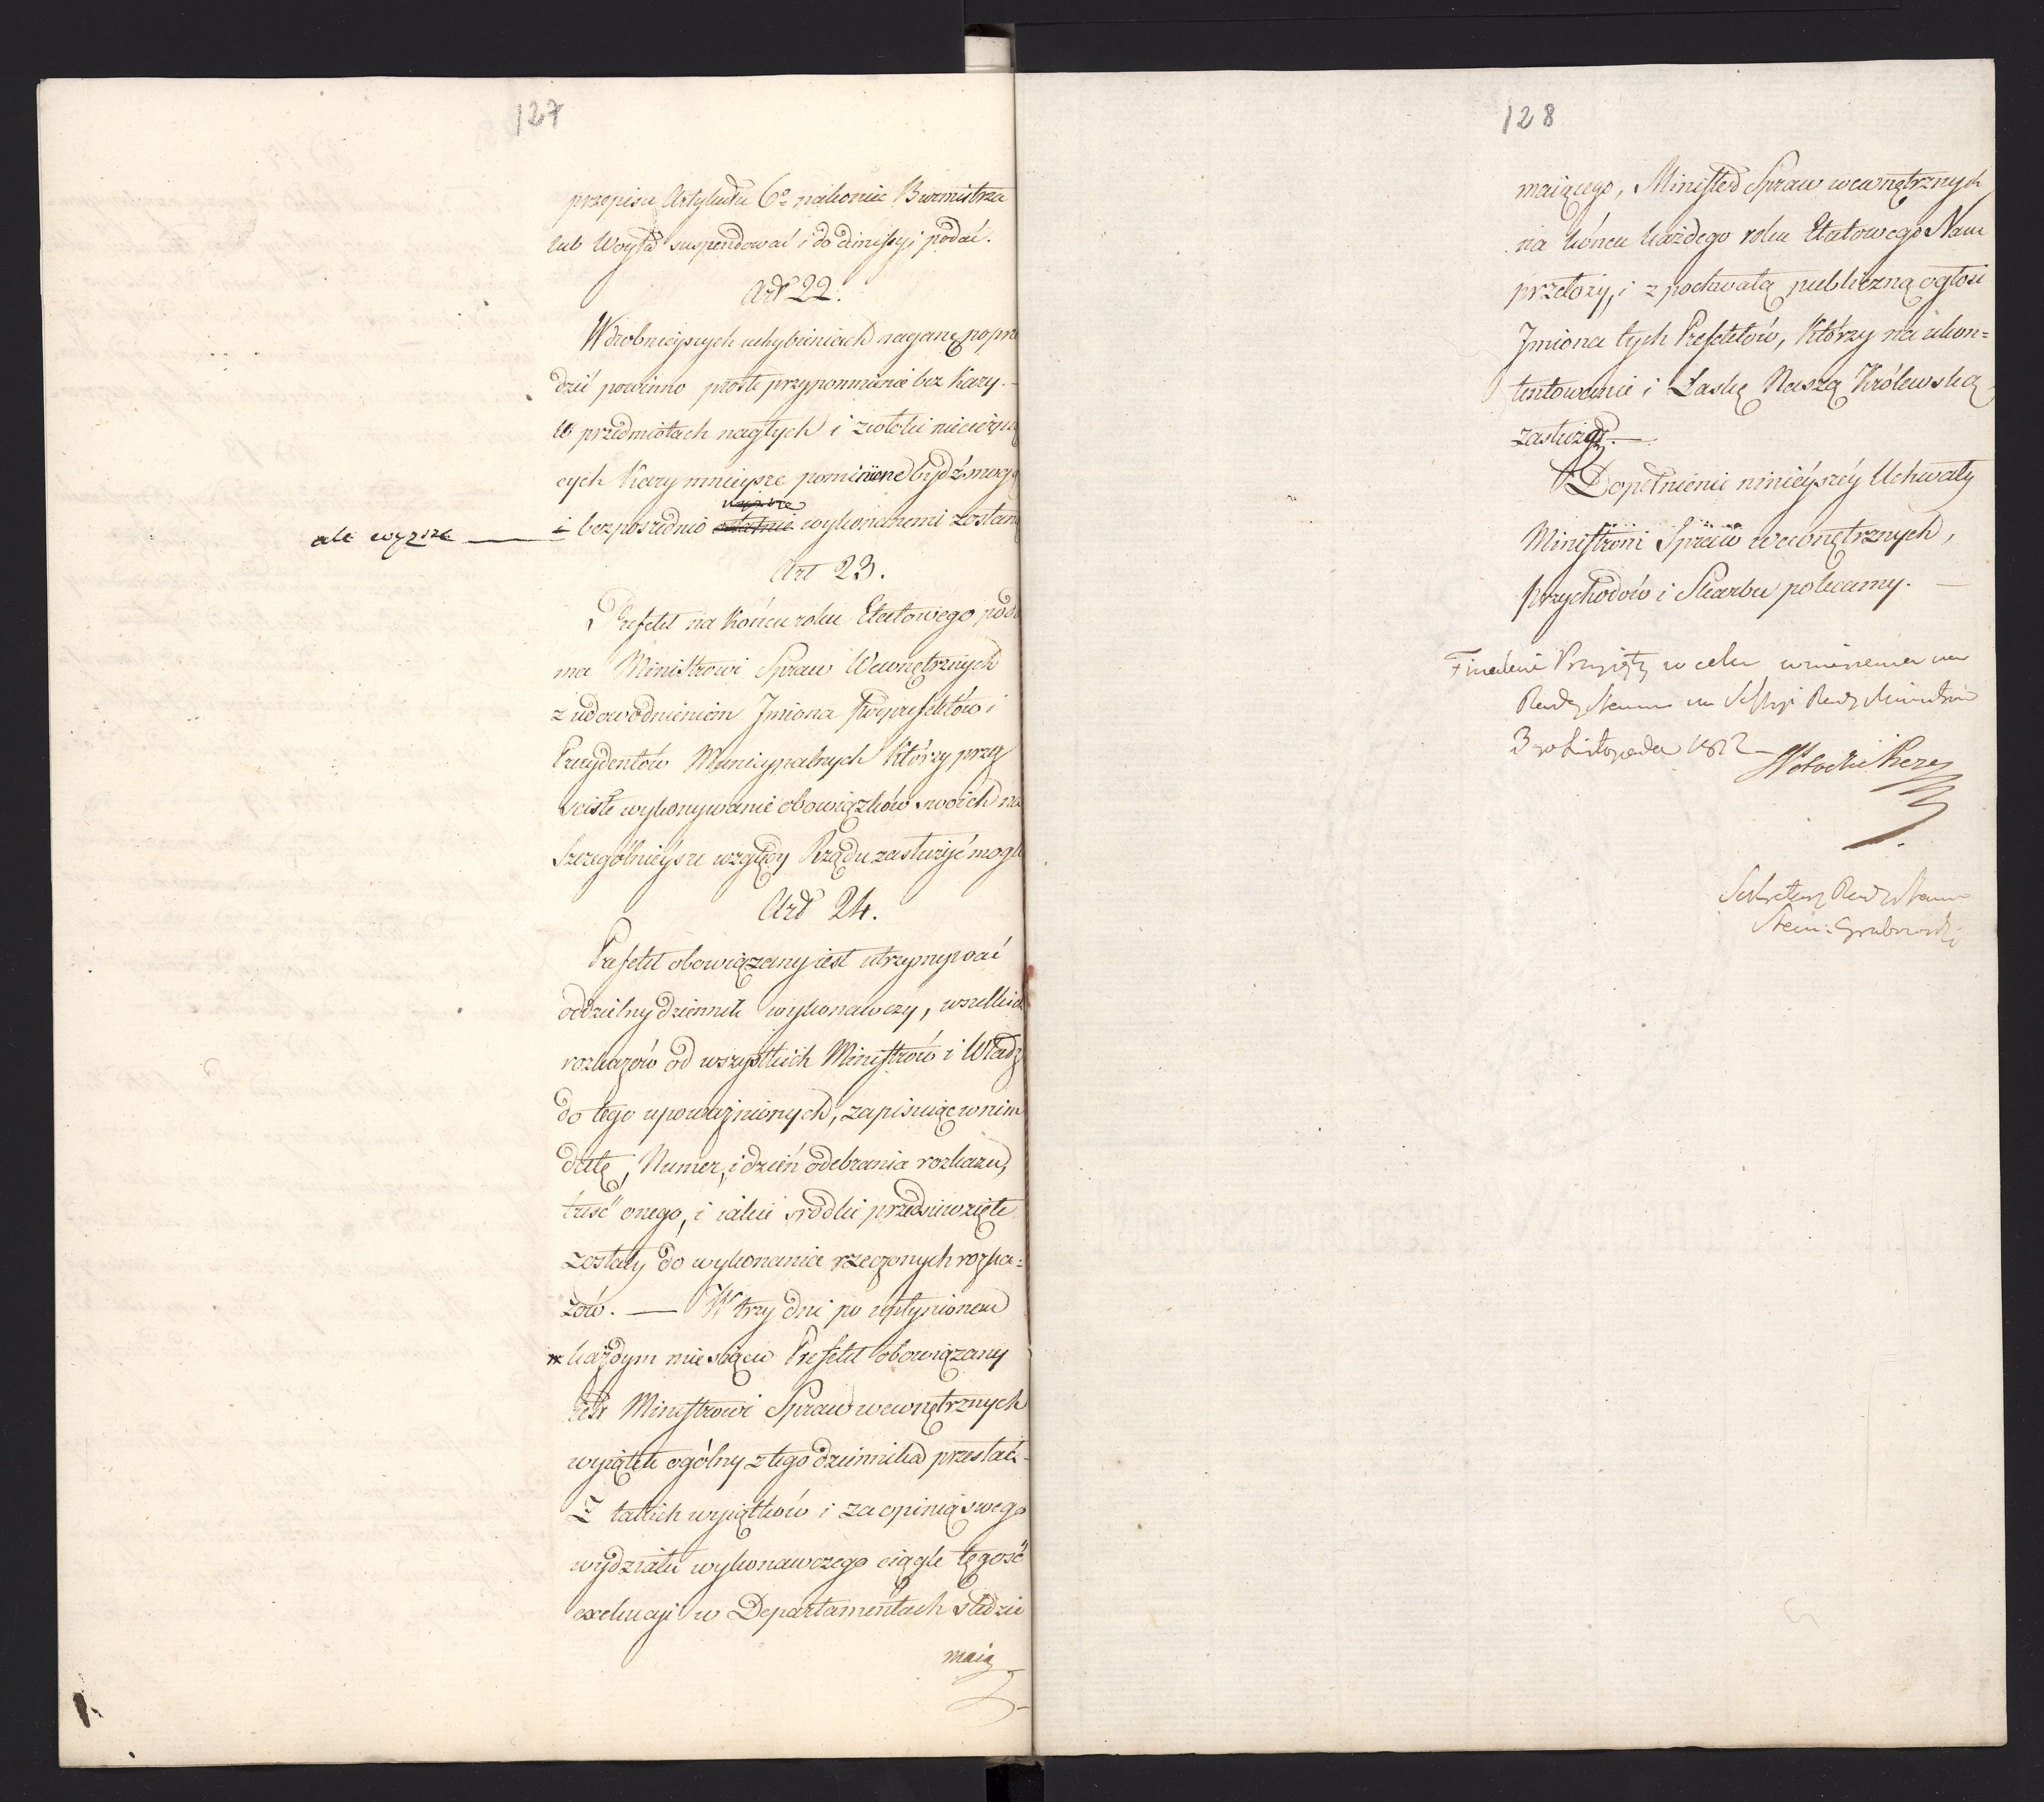 127
przepisu Artykułu 6º nakoniec Burmistrza
lub Woyta suspendować i do dimissyi podać.
Art 22.
W drobnieyszych uchybieniach naganę popra
dzić powinno proste przypomnienie bez kary.
W przedmiotach nagłych i zwłoki niecierpią
cych kary mnieysze pominione bydź mogą
wyższe
ale wyzsze
i bezposrednio ostatnie wykonanemi zostaną
Art 23.
Prefekt na końcu roku Etatowego poda
ma Ministrowi Spraw Wewnętrznych
z udowodnieniem Jmiona Podprefektów i
Prezydentów Municypalnych którzy przez
scisłe wykonywanie obowiązków swoich na
szczególnieysze względy Rządu zasłużyć mogli
Art 24.
Prefekt obowiązany iest utrzymywać
oddzielny dziennik wykonawczy, wszelkich
rozkazów od wszystkich Ministrów i Władz
do tego upoważnionych, zapisuiąc w nim
datę, Numer, i dzień odebrania rozkazu,
treść onego, i iakie srodki przedsiewzięte
zostały do wykonania rzeczonych rozka=
zów. — W trzy dni po upłynionem
każdym miesiącu Prefekt obowiązany
iest Ministrowi Spraw wewnętrznych
wyiątek ogólny z tego dziennika przesłać.
Z takich wyiątków i za opinią swego
wydziału wykonawczego ciągle tęgość
exekucyi w Departamentach sledzie
maią
128
maiącego, Minister Spraw wewnętrznych
na końcu każdego roku Etatowego Nam
przełoży, i z pochwałą publiczną ogłosi
Jmiona tych Prefektów, którzy na ukon=
tentowanie i Łaskę Naszą Królewską
zasłużą. —
Dopełnienie ninieyszéy Uchwały
Ministrom Spraw wewnętrznych,
przychodów i Skarbu polecamy. —
Finalnie Przyięty w celu wniesienia na
Radę Stanu na Sessyi Rady Ministrów
3go Listopada 1812
Sekretarz Rady Stanu
Grabowski